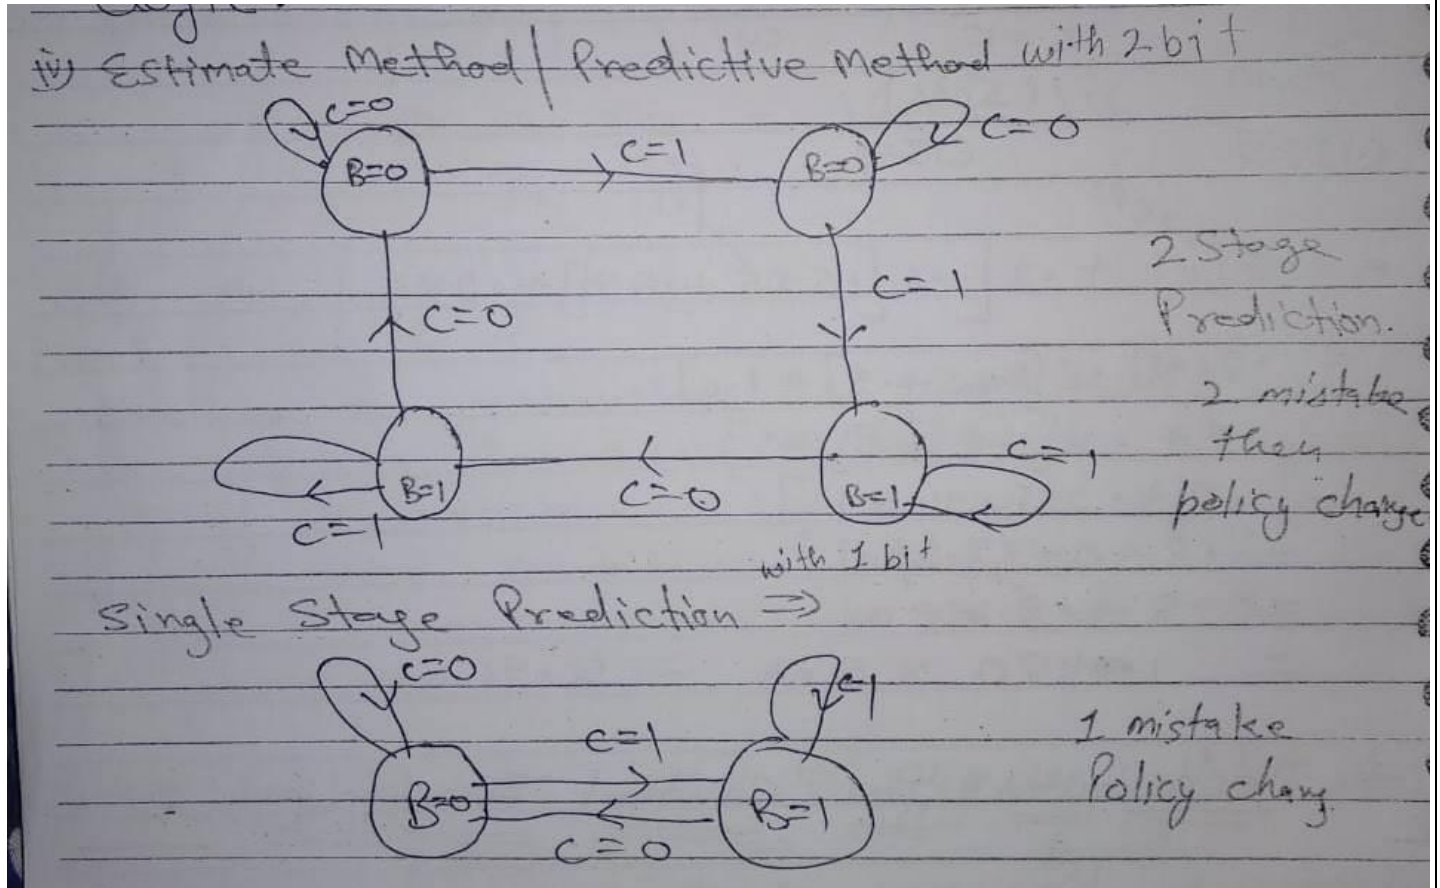 iv) Estimate Method / Predictive Method with 2 bit
C=0
B=0
C=1
B=0
C=0
C=0
C=1
2 Stage
Prediction.
2 mistake
then
policy change
B=1
C=1
C=0
B=1
C=1
with 1 bit
Single Stage Prediction ⇒
C=0
C=1
B=0
C=1
C=0
B=1
1 mistake
Policy chang